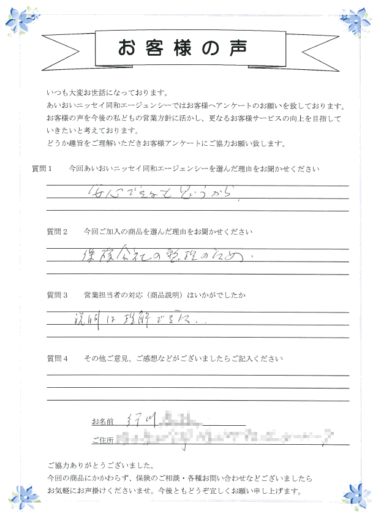 お客様の声
いつも大変お世話になっております。
あいおいニッセイ同和エージェンシーではお客様へアンケートのお願いを致しております。
お客様の声を今後の私どもの営業方針に活かし、更なるお客様サービスの向上を目指して
いきたいと考えております。
どうか趣旨をご理解いただきお客様アンケートにご協力お願い致します。
質問1 今回あいおいニッセイ同和エージェンシーを選んだ理由をお聞かせください
安心できると思うから
質問2 今回ご加入の商品を選んだ理由をお聞かせください
保険会社の整理のため.
質問3 営業担当者の対応(商品説明)はいかがでしたか
説明は理解できた..
質問4 その他ご意見、ご感想などがございましたらご記入ください
お名前
ご住所
ご協力ありがとうございました。
今回の商品にかかわらず、保険のご相談・各種お問い合わせなどございましたら
お気軽にお声掛けくださいませ。今後ともどうぞ宜しくお願い申し上げます。